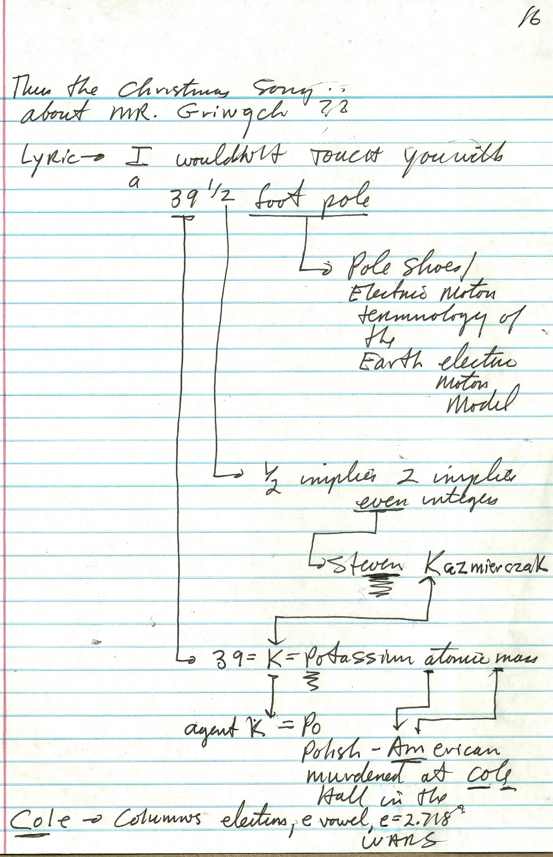 16
Thus the Christmas Song..
about MR. Griwgch ??
Lyric→ I wouldn't Touch you with
a
39 1/2 foot pole
Pole Shoes/
Electric motor
terminology of
the
Earth electric
motor
Model
1/2 implies 2 implies
even integers
Steven Kazmierczak
39 = K = Potassium atomic mass
agent K = Po
Polish - American
murdered at Cole
Hall in the
Cole → Columns electrons, e vowel, e=2.718
WARS